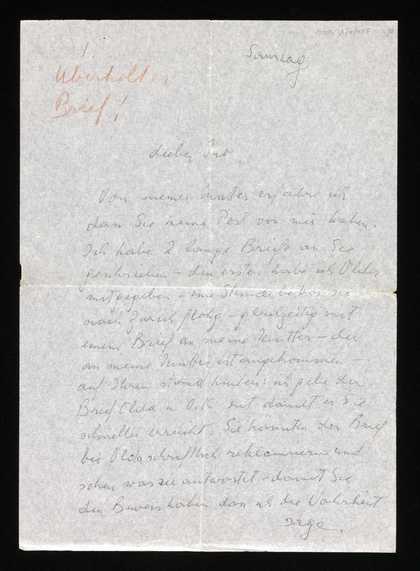 Samstag
Überholter
Brief!
Lieber
Von meiner Mutter erfahre ich
dass Sie keine Post von mir haben.
Ich habe 2 lange Briefe an Sie
geschrieben – den ersten habe ich Olda
mitgegeben – eine Stunde bevor sie
nach Zürich flog – gleichzeitig mit
einem Brief an meine Mutter – der
an meine Mutter ist angekommen –
auf Ihrem stand hinten: ich gebe den
Brief Olda mit damit er Sie
schneller erreicht. Sie könnten den Brief
bei Olda schriftlich reklamieren und
sehen was sie antwortet – damit Sie
den Beweis haben dass ich die Wahrheit
sage.